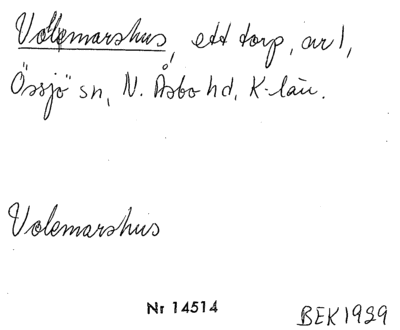 Volemarshus, ett torp, av 1,
Össjö sn, N. Åsbo hd, K-län.
Volemarshus
Nr 14514
BEK 1929